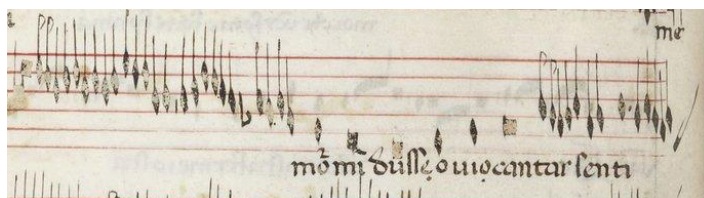 me
mo᷑mi dussẹ o uiọcantar senti